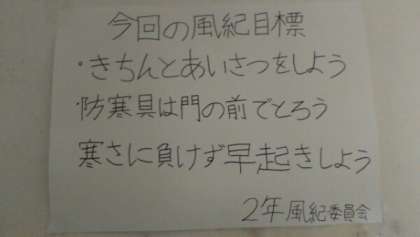 今回の風紀目標
・きちんとあいさつをしよう
・防寒具は門の前でとろう
寒さに負けず早起きしよう
2年 風紀委員会